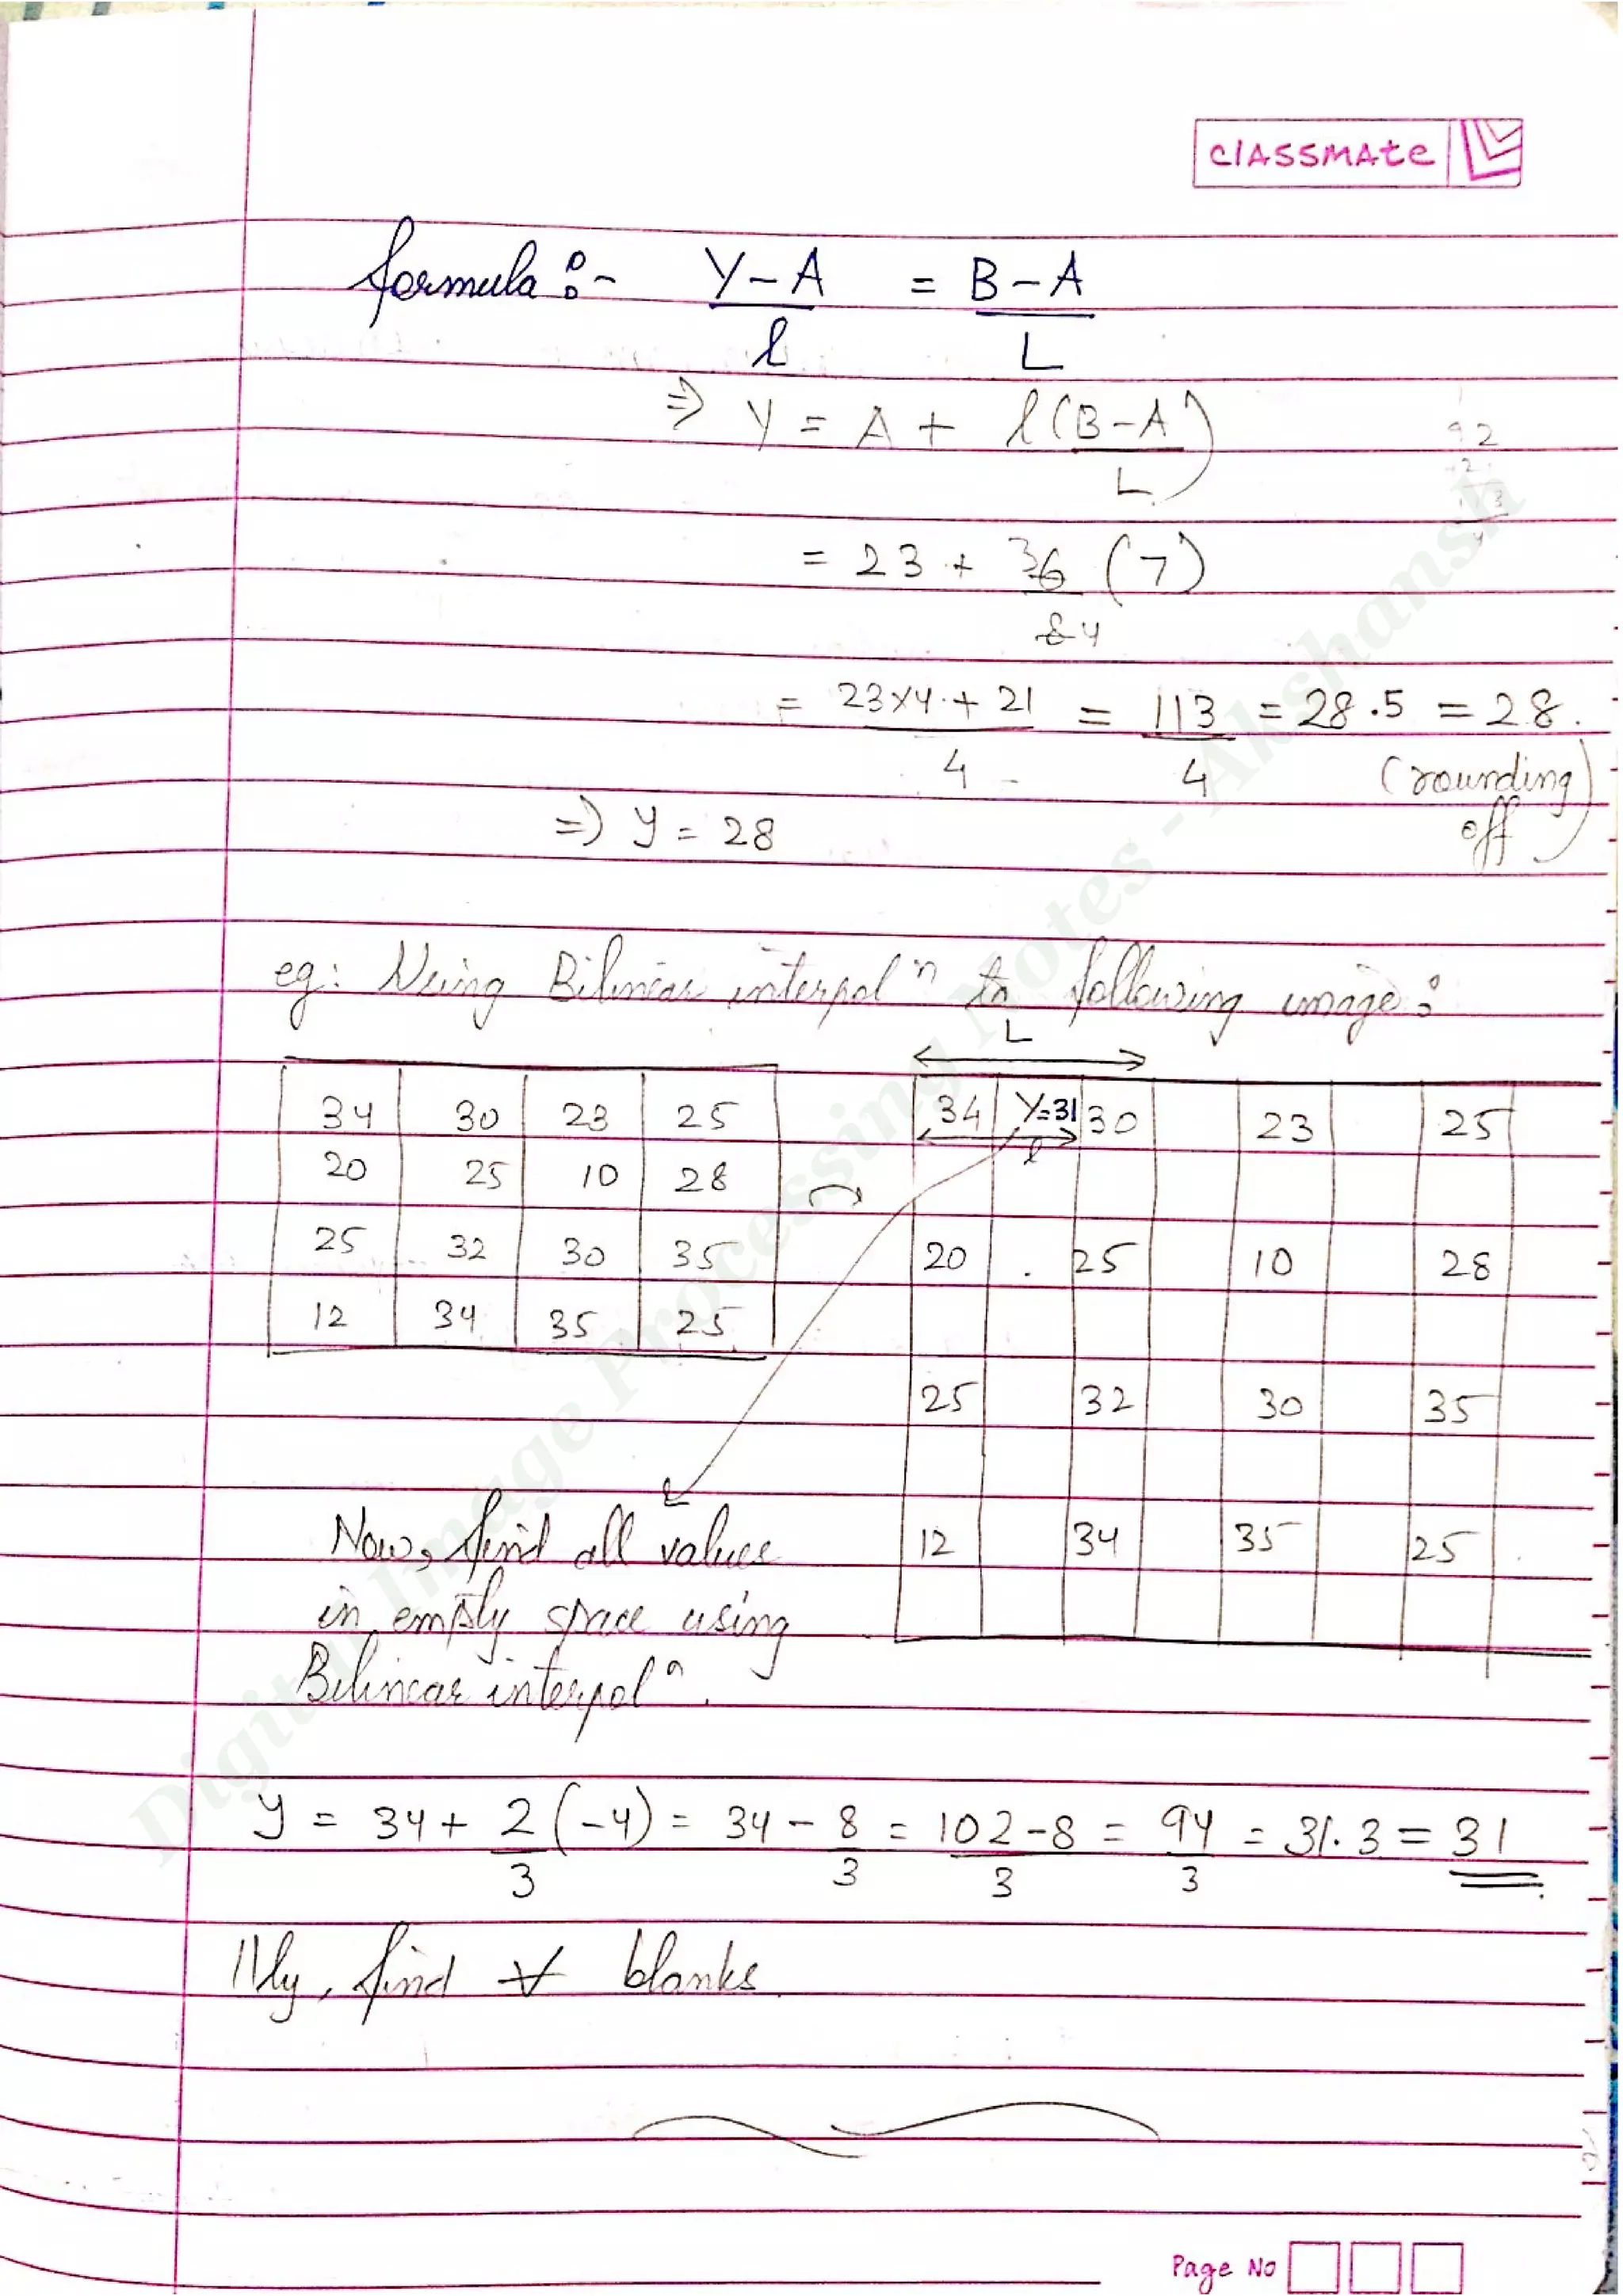 classmate
formula :- Y-A/l = B-A/L
⇒ Y = A + l(B-A/L)
92
= 23 + 36/84 (7)
= 23x4+21/4 = 113/4 = 28.5 = 28.
(rounding off)
⇒ y = 28
eg: Using Bilinear interpolⁿ to following image:
L
34 30 23 25
20 25 10 28
25 32 30 35
12 34 35 25
34 Y=31 30 23 25
l
20 . 25 10 28
25 32 30 35
12 34 35 25
Now, find all values
in empty space using
Bilinear interpolⁿ.
y = 34 + 2/3 (-4) = 34 - 8/3 = 102-8/3 = 94/3 = 31.3 = 31
llly, find ∀ blanks.
Page No
Digital Image Processing Notes - Akshansh